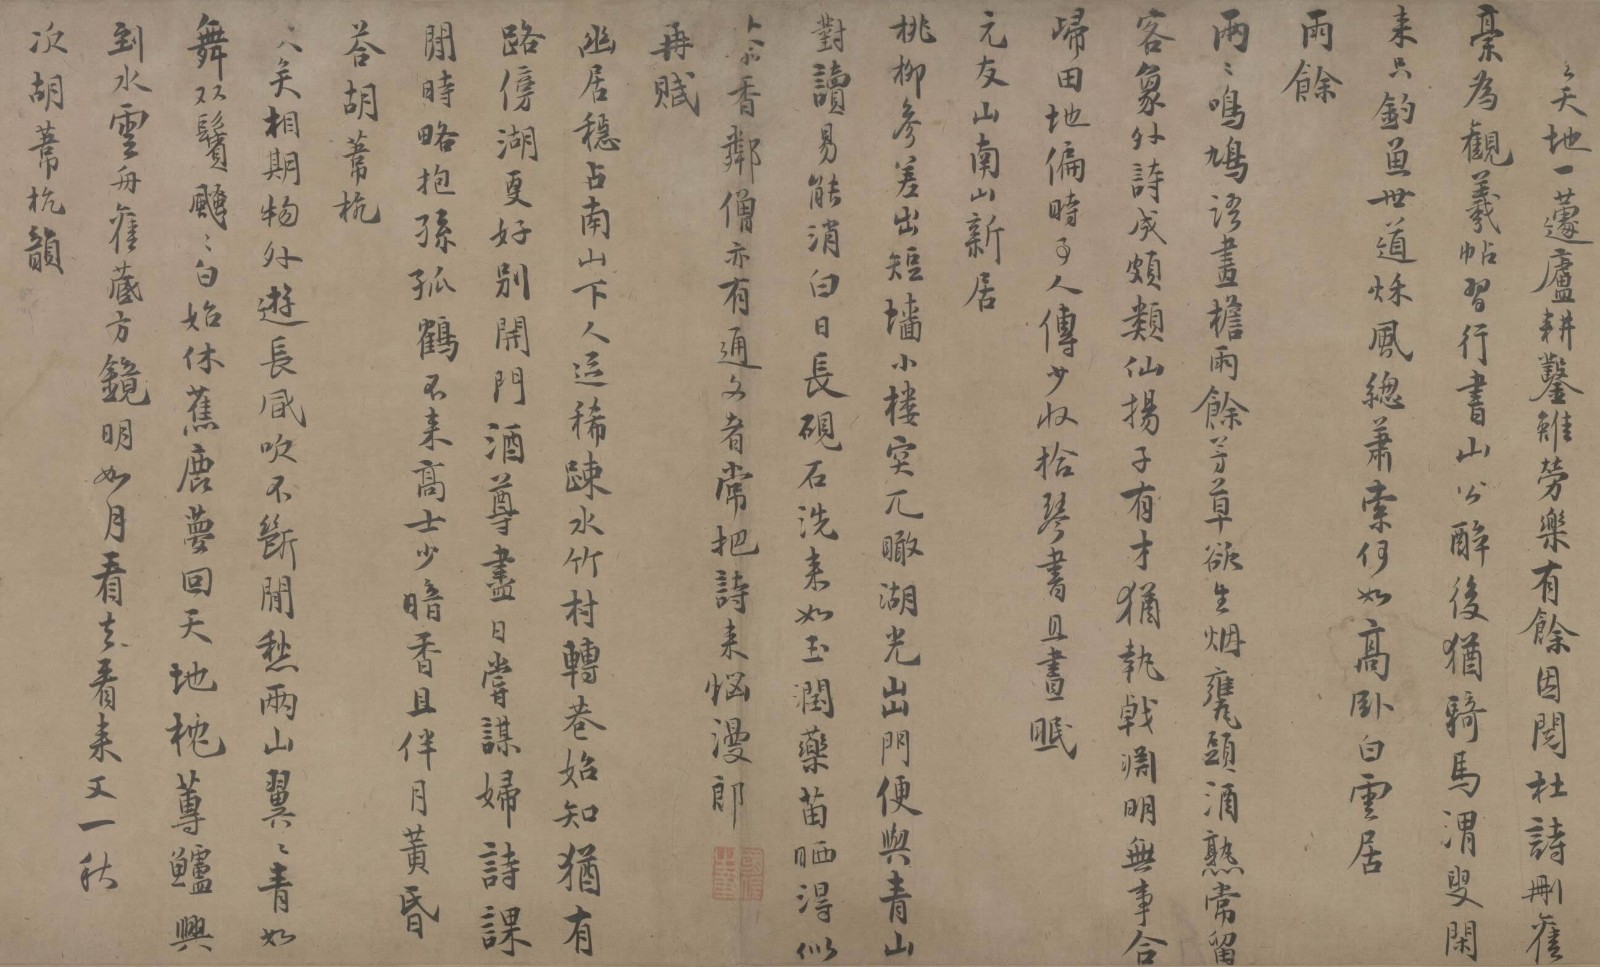 天地一蘧廬耕鑿雖勞樂有餘因閱杜詩刪舊
稾為觀羲帖習行書山公醉後猶騎馬渭叟閑
来只釣魚世道秌風總蕭索何如高卧白雲居
雨餘
兩〻鳴鳩語畫檐雨餘芳草欲生烟甕頭酒熟常留
客象外詩成頗類仙揚子有才猶執戟渊明無事合
歸田地偏時事人傳少收拾琴書且晝眠
元友山南山新居
桃柳參差出短墻小楼突兀瞰湖光出門便與青山
對讀易能消白日長硯石洗来如玉潤藥苗晒淂似
香鄰僧亦有通文者常把詩来惱漫郎
再賦
幽居穩占南山下人迹稀踈水竹村轉巷始知猶有
路傍湖更好別開門酒尊盡日嘗謀婦詩課
閒時略抱孫孤鶴不来高士少暗香且伴月黃昏
荅胡葦杭
久矣相期物外遊長風吹不斷閒愁兩山翼〻青如
舞双鬢飃〻白始休蕉鹿夢回天地枕蓴鱸興
到水雲舟舊藏方鏡明如月看去看来又一秋
次胡葦杭韻